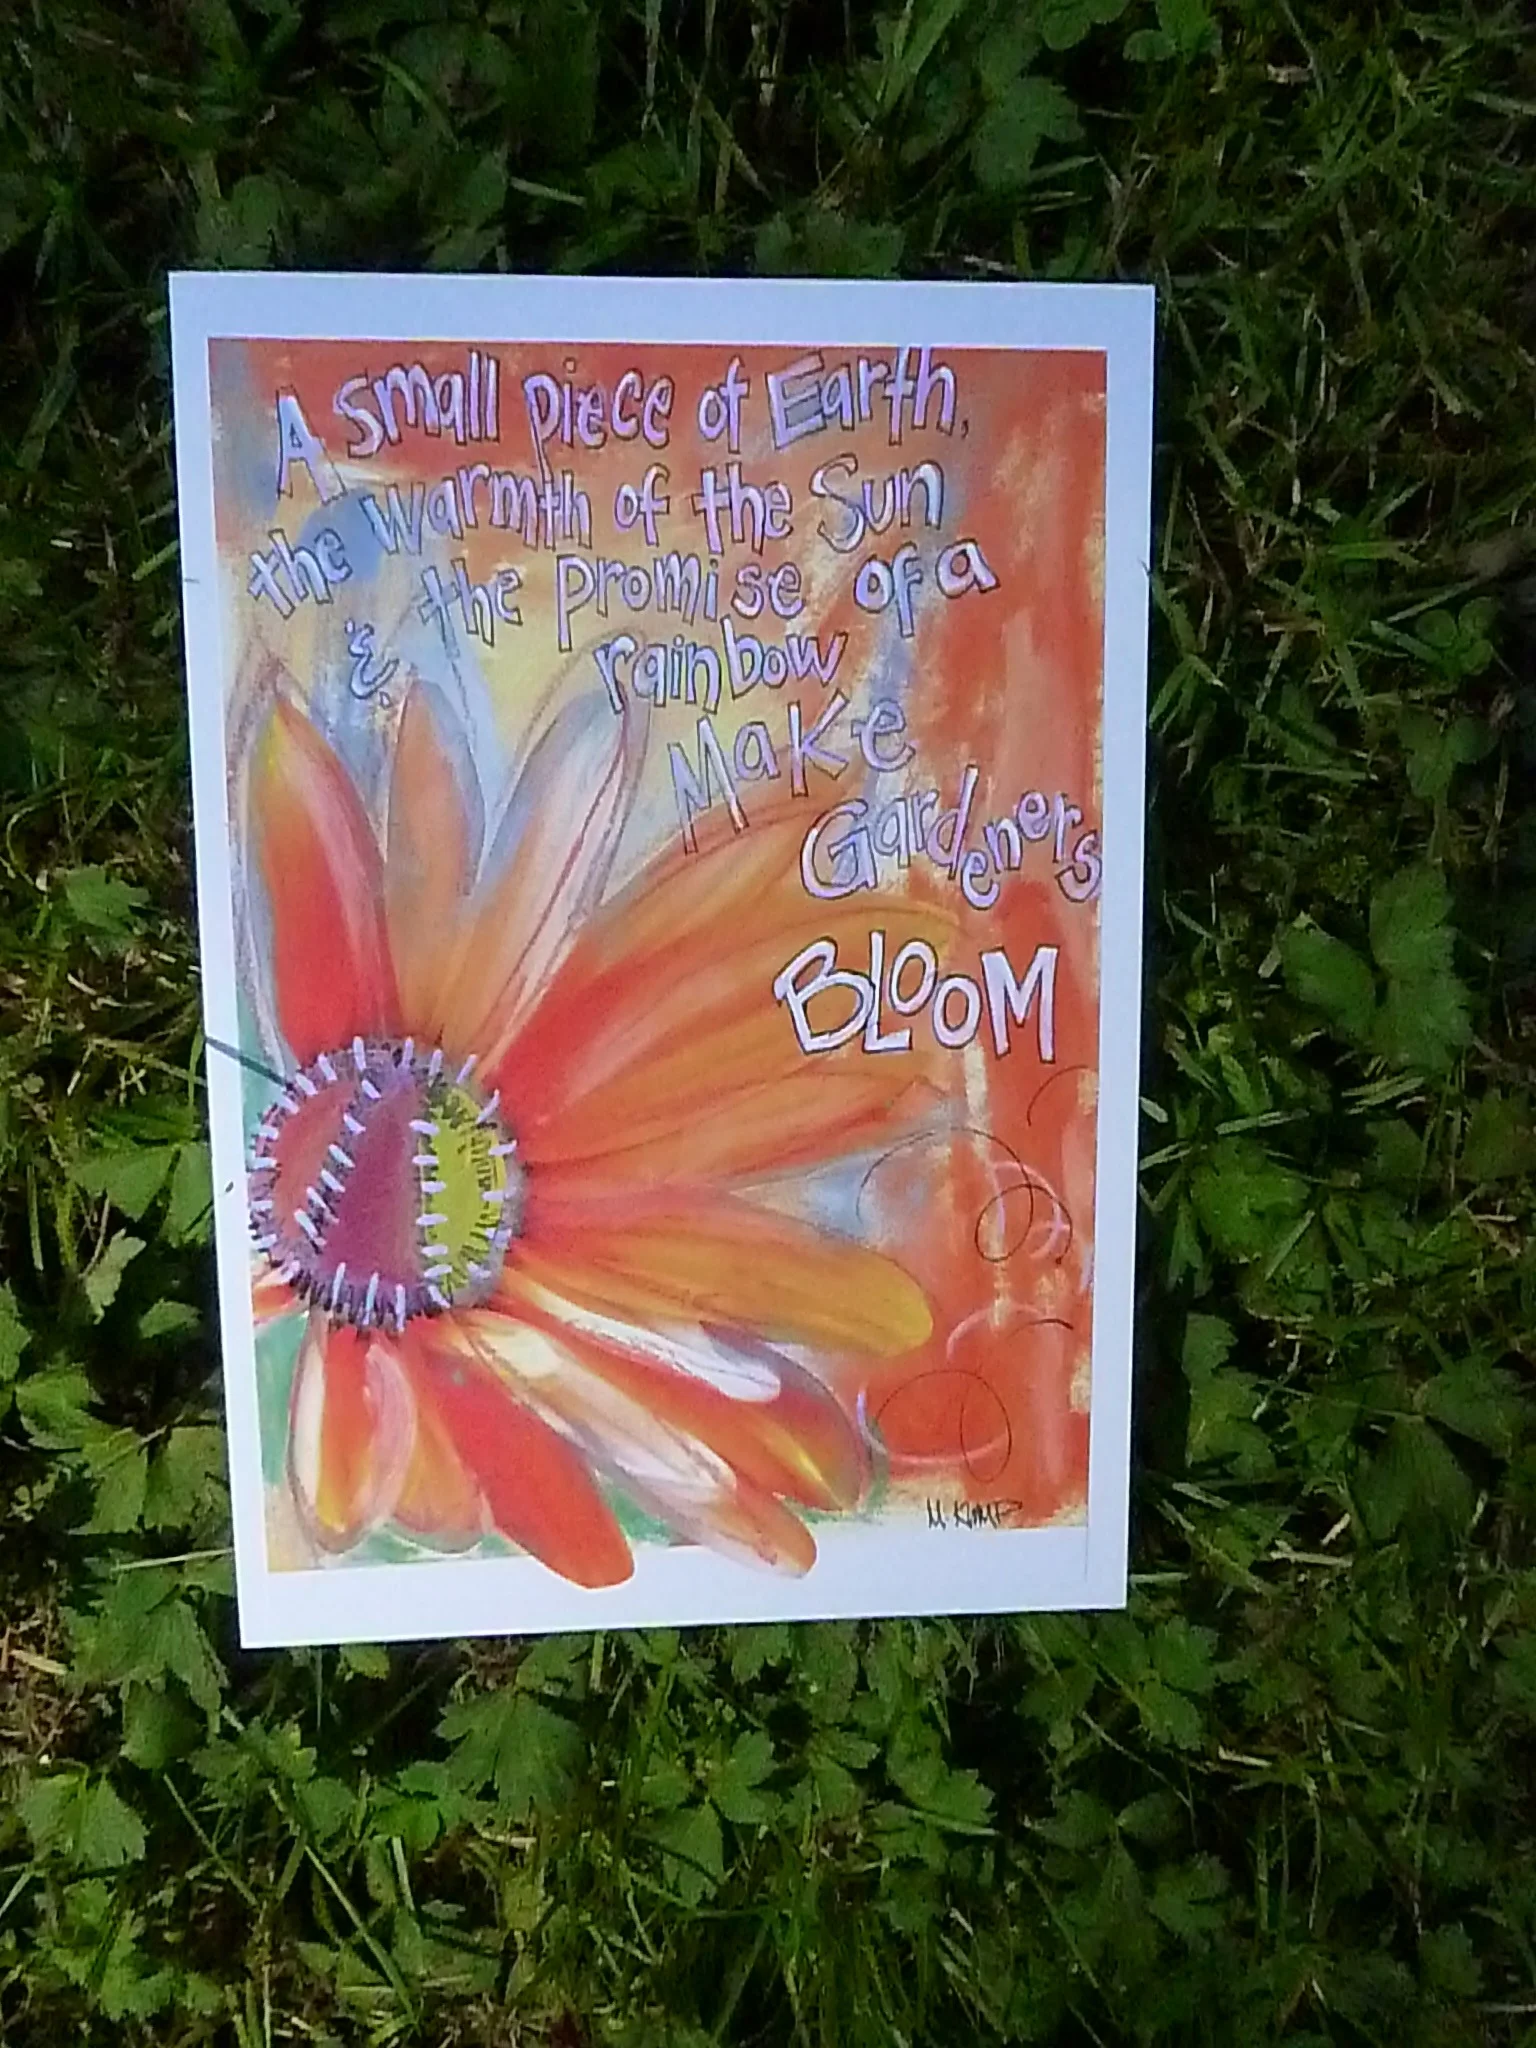 A small piece of Earth,
the warmth of the Sun
& the promise of a
rainbow
Make
Gardeners
BLOOM